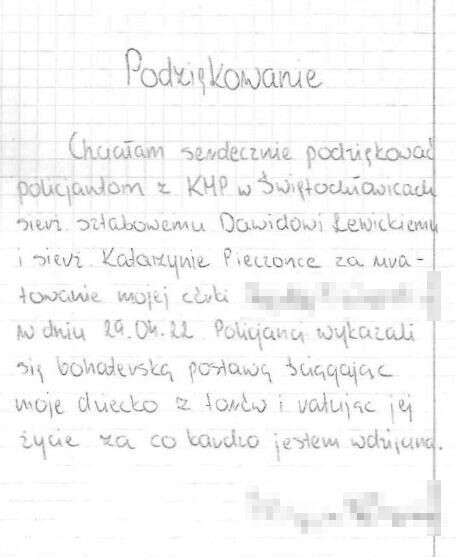 Podziękowanie
Chciałam serdecznie podziękować
policjantom z KMP w Świętochłowicach
sierż. sztabowemu Dawidowi Lewickiemu
i sierż. Katarzynie Pieczonce za ura-
towanie mojej córki
w dniu 29.04.22. Policjanci wykazali
się bohaterską postawą ściągając
moje dziecko z torów i ratując jej
życie za co bardzo jestem wdzięczna.